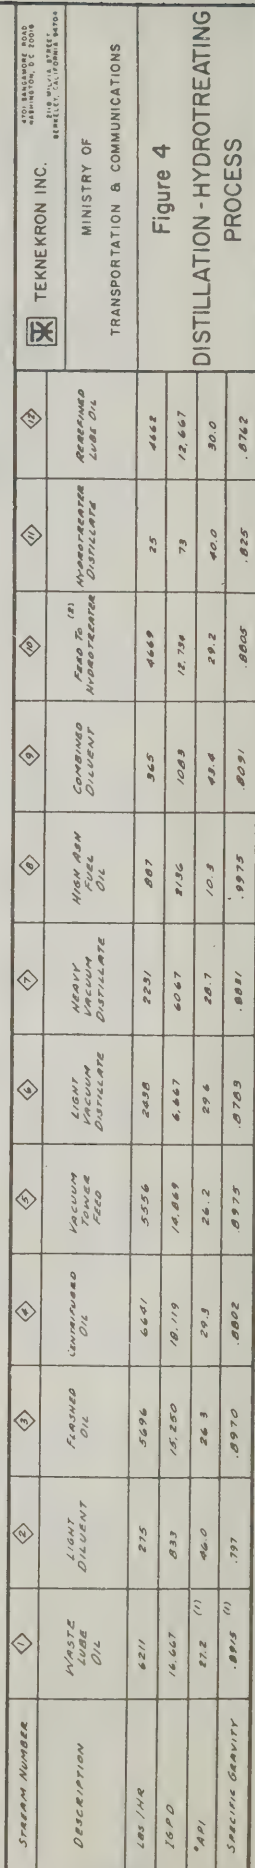 STREAM NUMBER 1 2 3 4 5 6 7 8 9 10 11 12
DESCRIPTION WASTE LUBE OIL LIGHT DILUENT FLASHED OIL CENTRIFUGED OIL VACUUM TOWER FEED LIGHT VACUUM DISTILLATE HEAVY VACUUM DISTILLATE HIGH ASH FUEL OIL COMBINED DILUENT FEED TO (2) HYDROTREATER HYDROTREATER DISTILLATE REREFINED LUBE OIL
LBS/HR 6211 275 5696 6641 5556 2438 2231 887 365 4669 25 4662
IGPD 16,667 833 15,250 18,119 14,869 6,667 6067 2136 1083 12,734 73 12,667
°API 27.2 (1) 46.0 26.3 29.3 26.2 29.6 28.7 10.3 43.4 29.2 40.0 30.0
SPECIFIC GRAVITY .8915 (1) .797 .8970 .8802 .8975 .8783 .8831 .9975 .8091 .8805 .825 .8762
TEKNEKRON INC.
4701 SANGAMORE ROAD
WASHINGTON, D.C. 20016
2118 MILVIA STREET
BERKELEY, CALIFORNIA 94704
MINISTRY OF
TRANSPORTATION & COMMUNICATIONS
Figure 4
DISTILLATION - HYDROTREATING
PROCESS